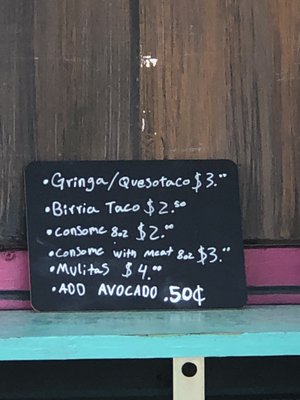 • Gringa/Quesotaco $3.00
• Birria Taco $2.50
• consome 8oz $2.00
• consome with meat 8oz $3.00
• Mulitas $4.00
• ADD AVOCADO .50¢